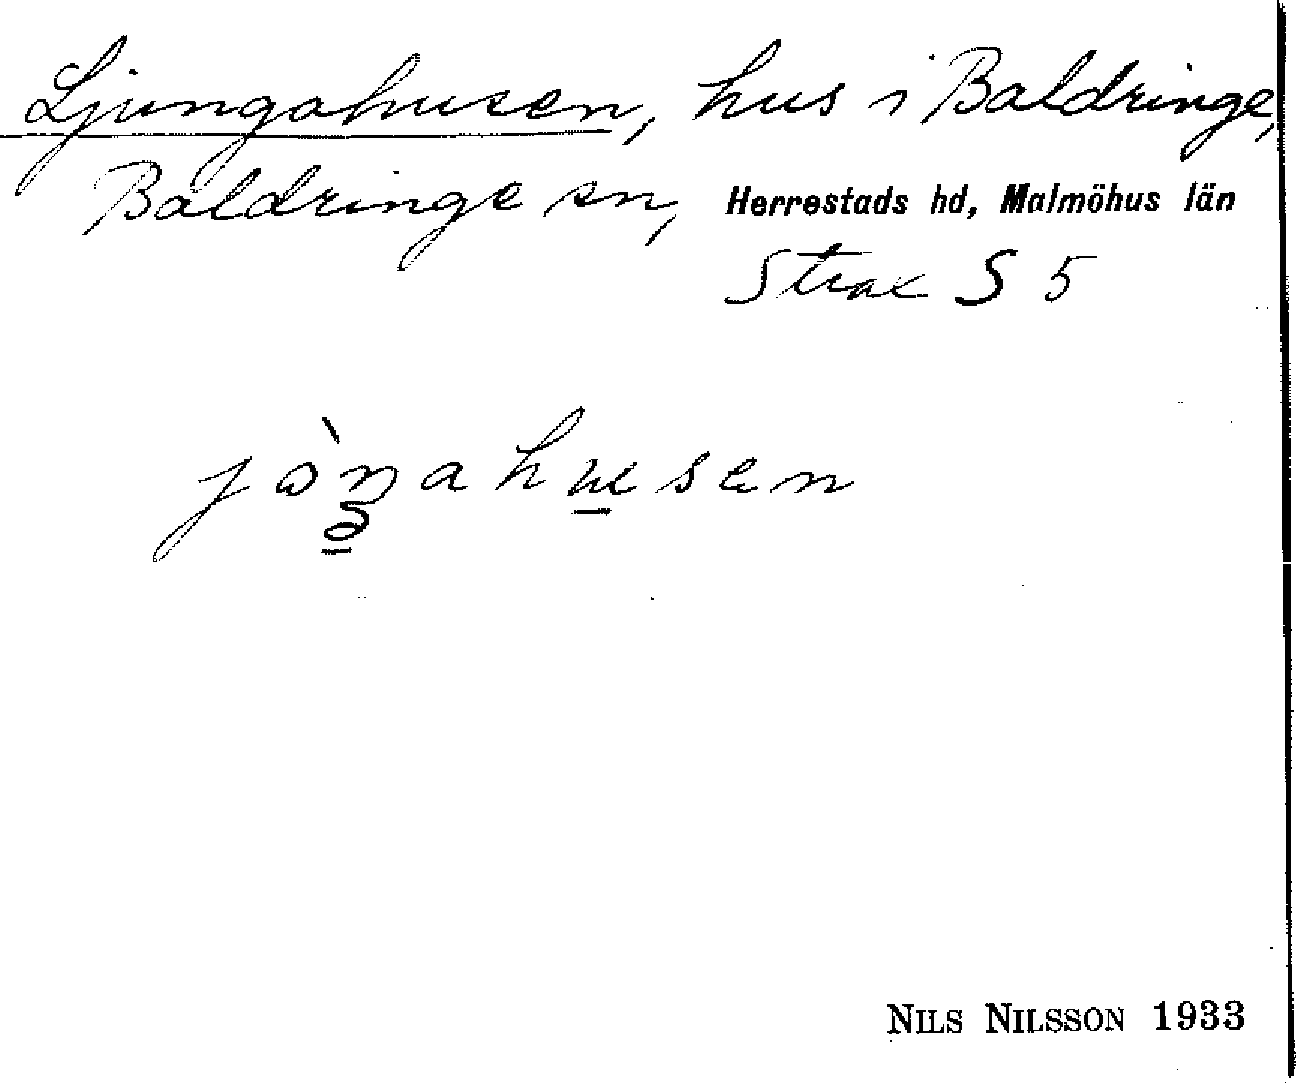 Ljungahusen, hus i Baldringe,
Baldringe sn, Herrestads hd, Malmöhus län
Strax S 5
NILS NILSSON 1933